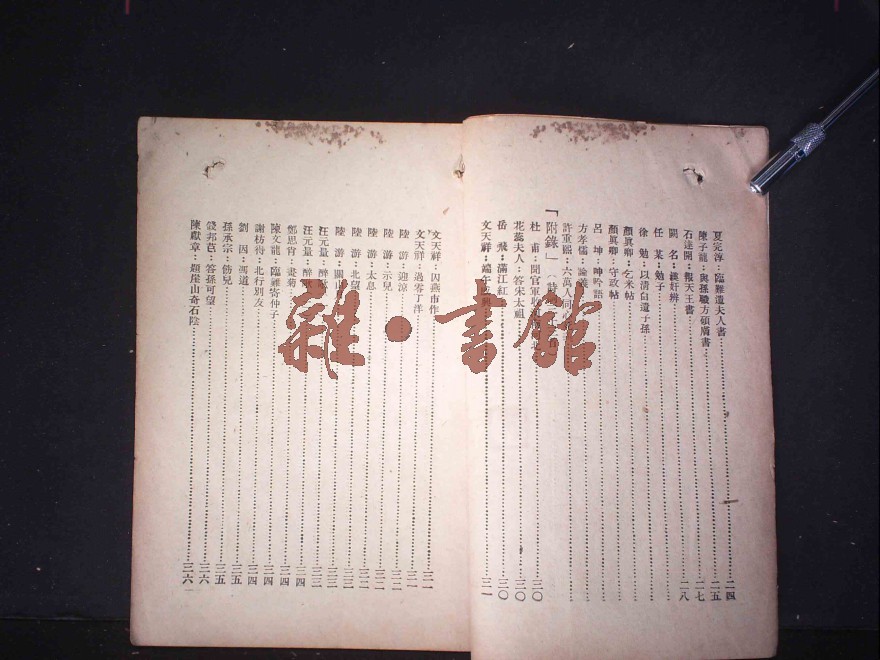 夏完淳：臨難遺夫人書……二四
陳子龍：與孫職方碩膚書……二五
石達開：報天王書……二七
闕名：漢奸辨……二八
任某：勉子……
徐勉：以清白遺子孫……
顏眞卿：乞米帖……
顏眞卿：守政帖……
呂坤：呻吟語……
方孝儒：論義……
許重熙：六萬人同心……
「附錄」
杜甫：聞官軍收……三〇
花蕊夫人：答宋太祖……三〇
岳飛：滿江紅……三〇
文天祥：端午……三一
文天祥：囚燕市作……三一
文天祥：過零丁洋……三一
陸游：迎涼……三二
陸游：示兒……三二
陸游：太息……三二
陸游：北望……三二
陸游：關山……三三
汪元量：醉歌……三三
汪元量：醉歌……三四
鄭思肖：畫菊……三四
陳文龍：臨難寄仲子……三四
謝枋得：北行別友……三四
劉因：馮道……三五
孫承宗：飭兒……三五
錢邦芑：答孫可望……三六
陳獻章：題崖山奇石陰……三六
雜·書館